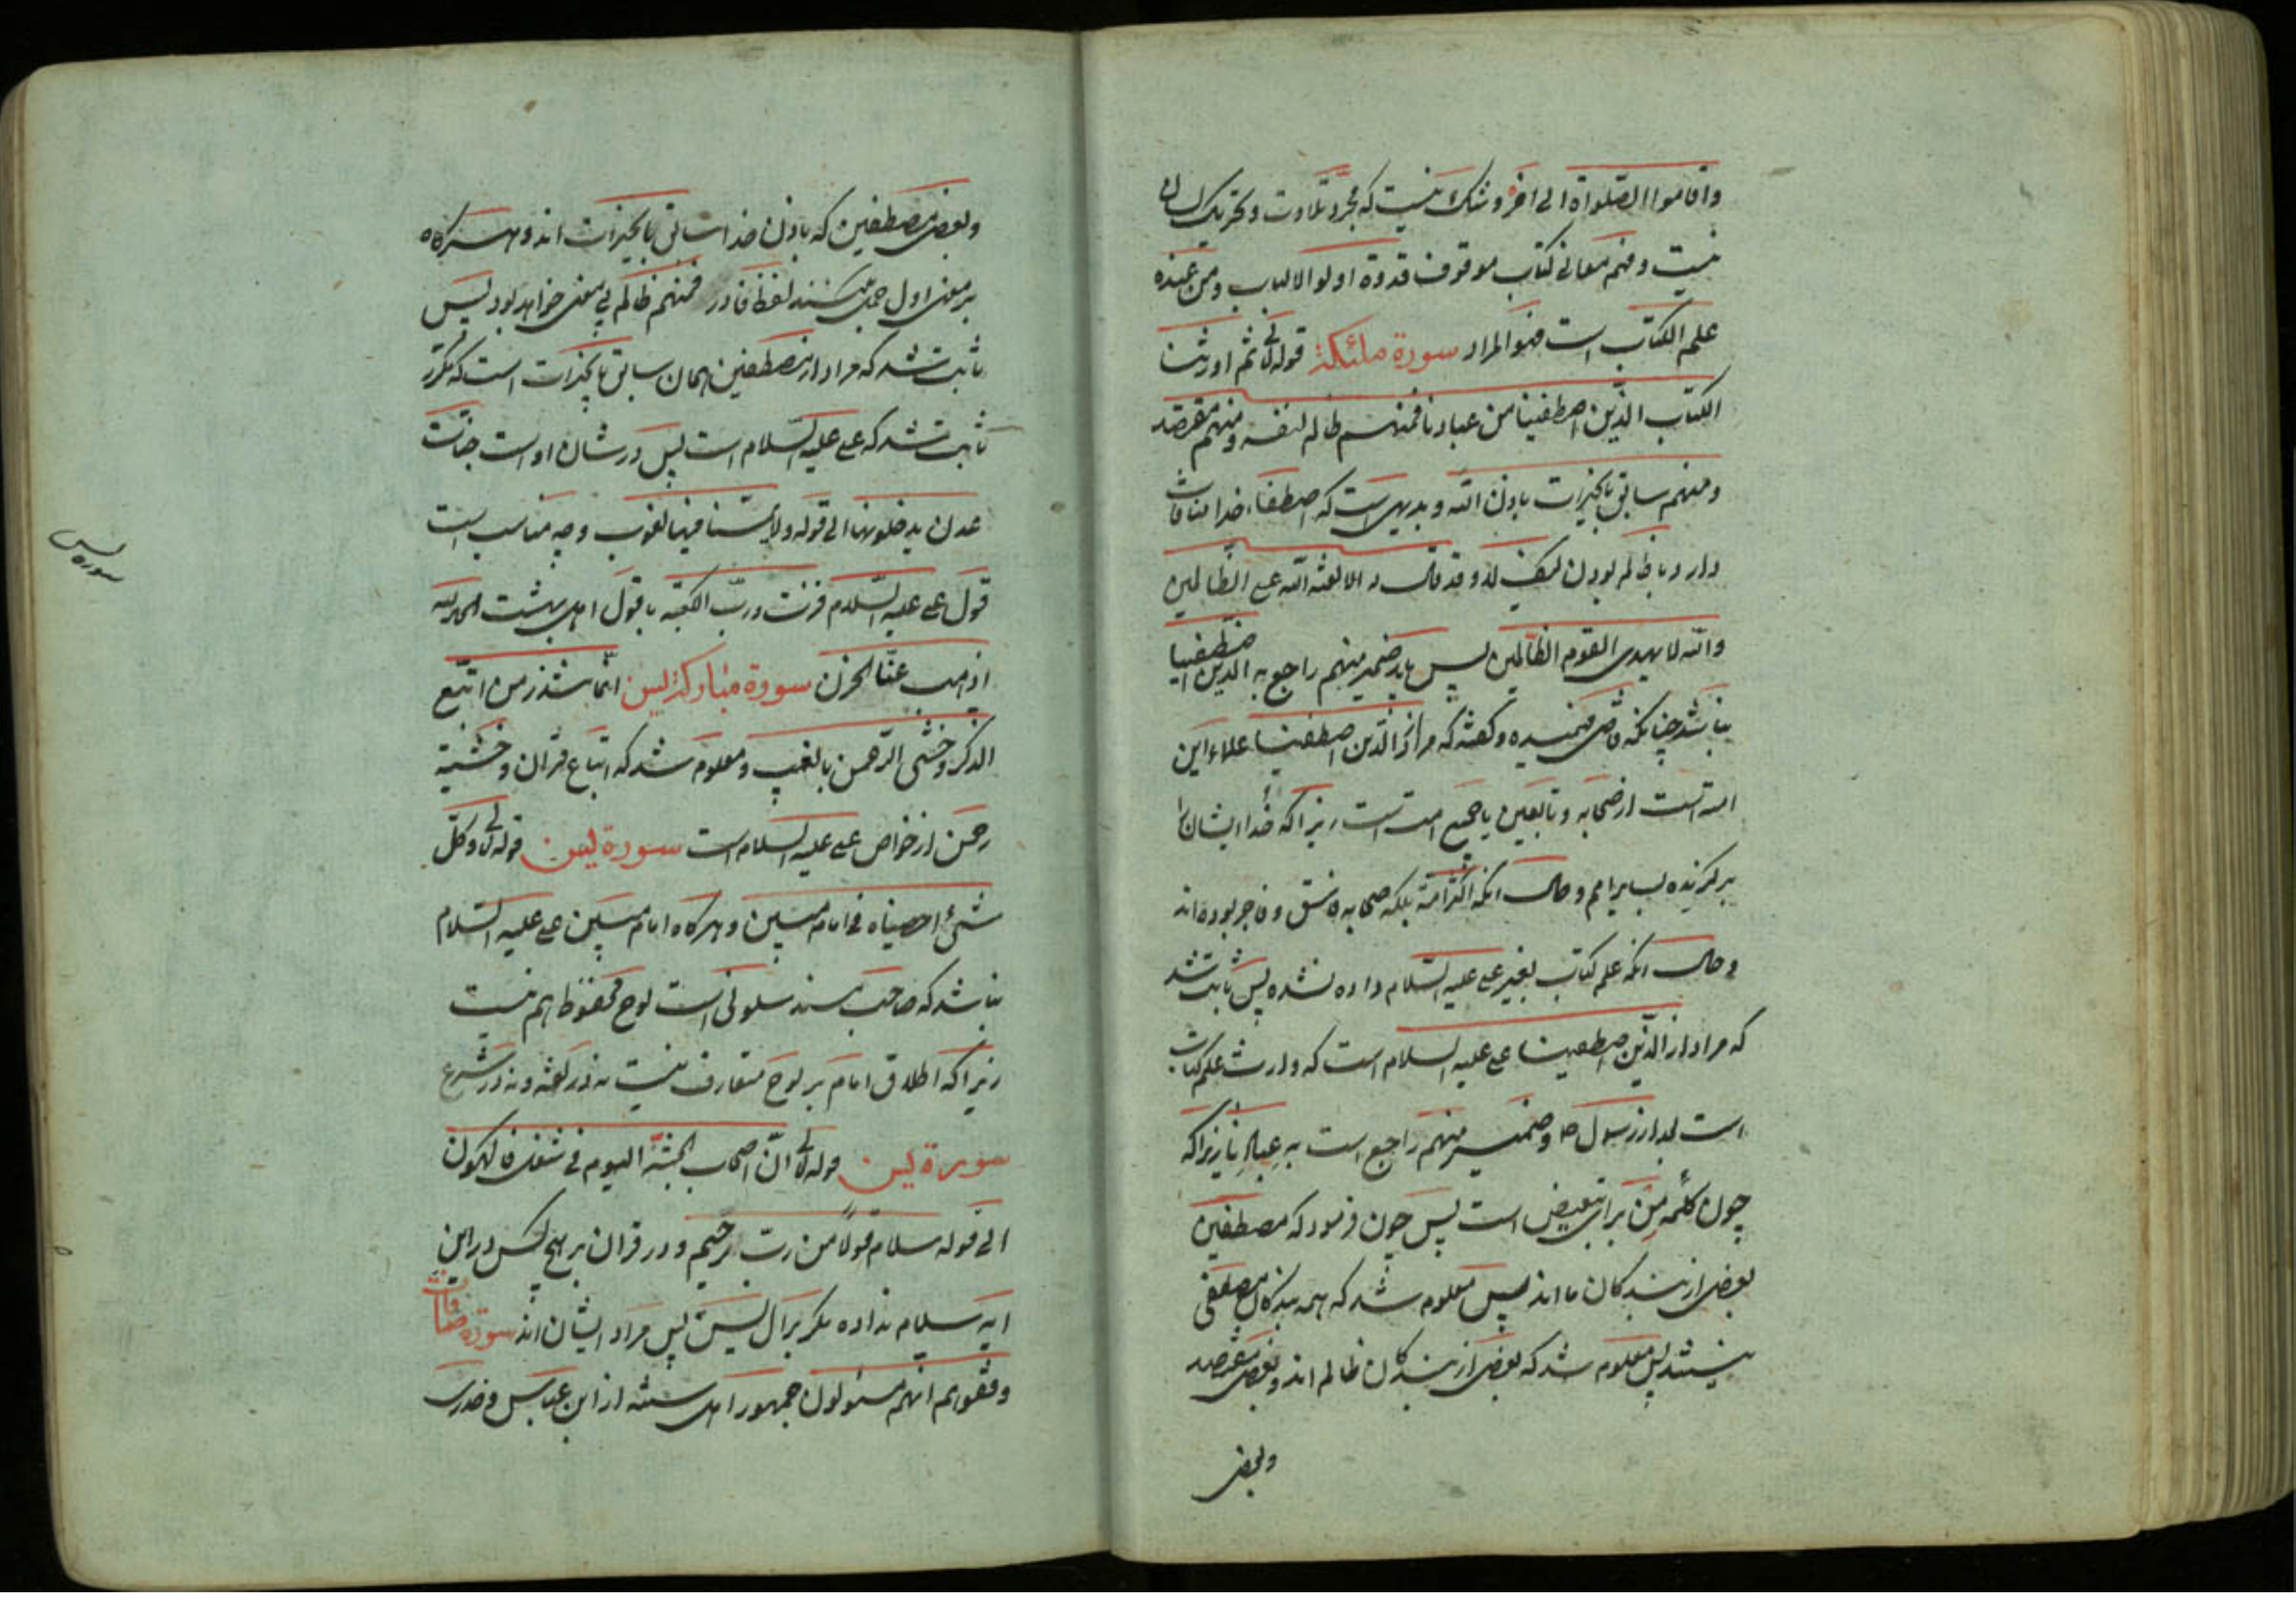 واقاموا الصلواة الی اخره و شک نیست که مجرد تلاوت و تحریک لسان
نیست و فهم معانی کتاب موقوف قدوة اولو الالباب و من عنده
علم الکتاب است فهو المراد سورة ملئکة قوله تعالی ثم اورثنا
الکتاب الذین اصطفینا من عبادنا فمنهم ظالم لنفسه و منهم مقتصد
و منهم سابق بالخیرات باذن الله و بدیهی است که اصطفاء خدا منافات
دارد با ظالم بودن و قد قال الا لعنة الله علی الظالمین
والله لا یهدی القوم الظالمین پس باید ضمیر منهم راجع به الذین اصطفینا
نباشد چنانکه قاضی فهمیده و گفته که مراد از الذین اصطفینا علماء این
امت است از صحابه و تابعین یا جمیع امت است زیرا که خدا ایشان را
برگزیده بسایر امم و حال آنکه اکثر امة بلکه صحابه فاسق و فاجر بوده اند
و حال آنکه علم کتاب بغیر علی علیه السلام داده نشده پس ثابت شد
که مراد از الذین اصطفینا علی علیه السلام است که وارث علم کتاب
است بعد از رسول ص و ضمیر منهم راجع است به عبادنا زیرا که
چون کلمه من برای تبعیض است پس چون فرمود که مصطفین
بعضی از بندکان ما اند پس معلوم شد که همه بندکان مصطفی
نیستند پس معلوم شد که بعضی از بندکان ظالم اند و بعضی مقتصد
وبعض
وبعضی مصطفین که باذن خدا سابق بالخیرات اند و هر کاه
بر معنی اول حمل کنند لفظ فا در فمنهم ظالم بی معنی خواهد بود پس
ثابت شد که مراد از مصطفین همان سابق بالخیرات است که مکرر
ثابت شد که علی علیه السلام است پس در شان او است جنات
عدن یدخلونها الی قوله ولا یمسنا فیها لغوب و چه مناسب است
قول علی علیه السلام فزت و رب الکعبة با قول اهل بهشت الحمد لله
اذهب عنا الحزن سورة مبارکة یس انما تنذر من اتبع
الذکر و خشی الرحمن بالغیب و معلوم شد که اتباع قران و خشیة
رحمن از خواص علی علیه السلام است سورة یس قوله تعالی و کل
شیء احصیناه فی امام مبین و هر کاه امام مبین علی علیه السلام
نباشد که صاحب مسند سلونی است لوح محفوظ هم نیست
زیرا که اطلاق امام بر لوح متعارف نیست نه در لغة و نه در شرع
سورة یس قوله تعالی ان اصحاب الجنة الیوم فی شغل فاکهون
الی قوله سلام قولا من رب رحیم و در قران بر هیچ کس در این
ایه سلام نداده مکر بر ال یس پس مراد ایشان اند سورة صافات
وقفوهم انهم مسئولون جمهور اهل سنة از ابن عباس و خدری
سورة یس